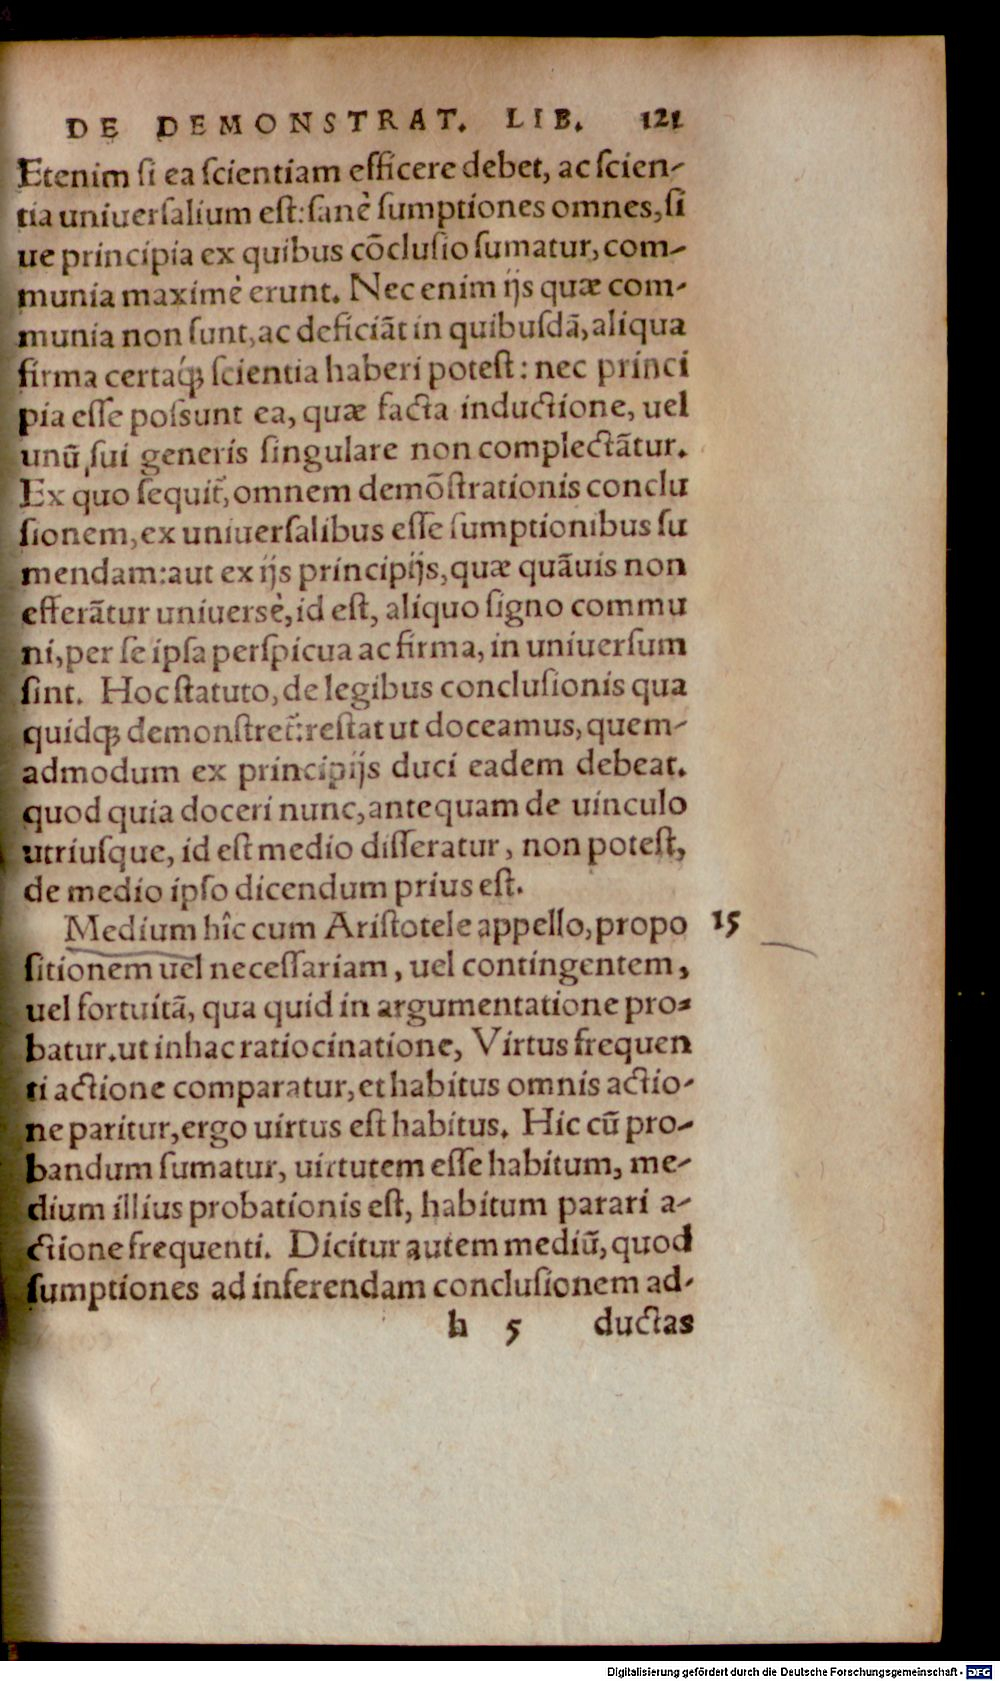 DE DEMONSTRAT. LIB. 121
Etenim si ea scientiam efficere debet, ac scien-
tia uniuersalium est: sanè sumptiones omnes, si
ue principia ex quibus cōclusio sumatur, com-
munia maximè erunt. Nec enim ijs quæ com-
munia non sunt, ac deficiāt in quibusdā, aliqua
firma certaq́; scientia haberi potest: nec princi
pia esse possunt ea, quæ facta inductione, uel
unū sui generis singulare non complectātur.
Ex quo sequit̃, omnem demōstrationis conclu
sionem, ex uniuersalibus esse sumptionibus su
mendam: aut ex ijs principijs, quæ quāuis non
efferātur uniuersè, id est, aliquo signo commu
ni, per se ipsa perspicua ac firma, in uniuersum
sint. Hoc statuto, de legibus conclusionis qua
quidq; demonstret̃: restat ut doceamus, quem-
admodum ex principijs duci eadem debeat.
quod quia doceri nunc, antequam de uinculo
utriusque, id est medio disseratur, non potest,
de medio ipso dicendum prius est.
Medium hîc cum Aristotele appello, propo 15
sitionem uel necessariam, uel contingentem,
uel fortuitā, qua quid in argumentatione pro-
batur. ut in hac ratiocinatione, Virtus frequen
ti actione comparatur, et habitus omnis actio-
ne paritur, ergo uirtus est habitus. Hic cū pro-
bandum sumatur, uirtutem esse habitum, me-
dium illius probationis est, habitum parari a-
ctione frequenti. Dicitur autem mediū, quod
sumptiones ad inferendam conclusionem ad-
h 5 ductas
Digitalisierung gefördert durch die Deutsche Forschungsgemeinschaft - DFG